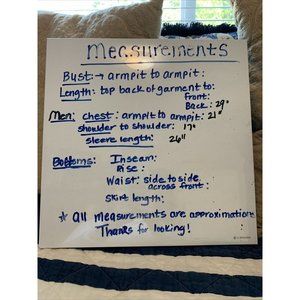 Measurements
Bust: → armpit to armpit:
Length: top back of garment to:
front:
Back: 29"
Men: chest: armpit to armpit: 21"
shoulder to shoulder: 17"
sleeve length: 26"
Bottoms: Inseam:
Rise:
Waist: side to side
across front:
Skirt length:
* all measurements are approximations
Thanks for looking!